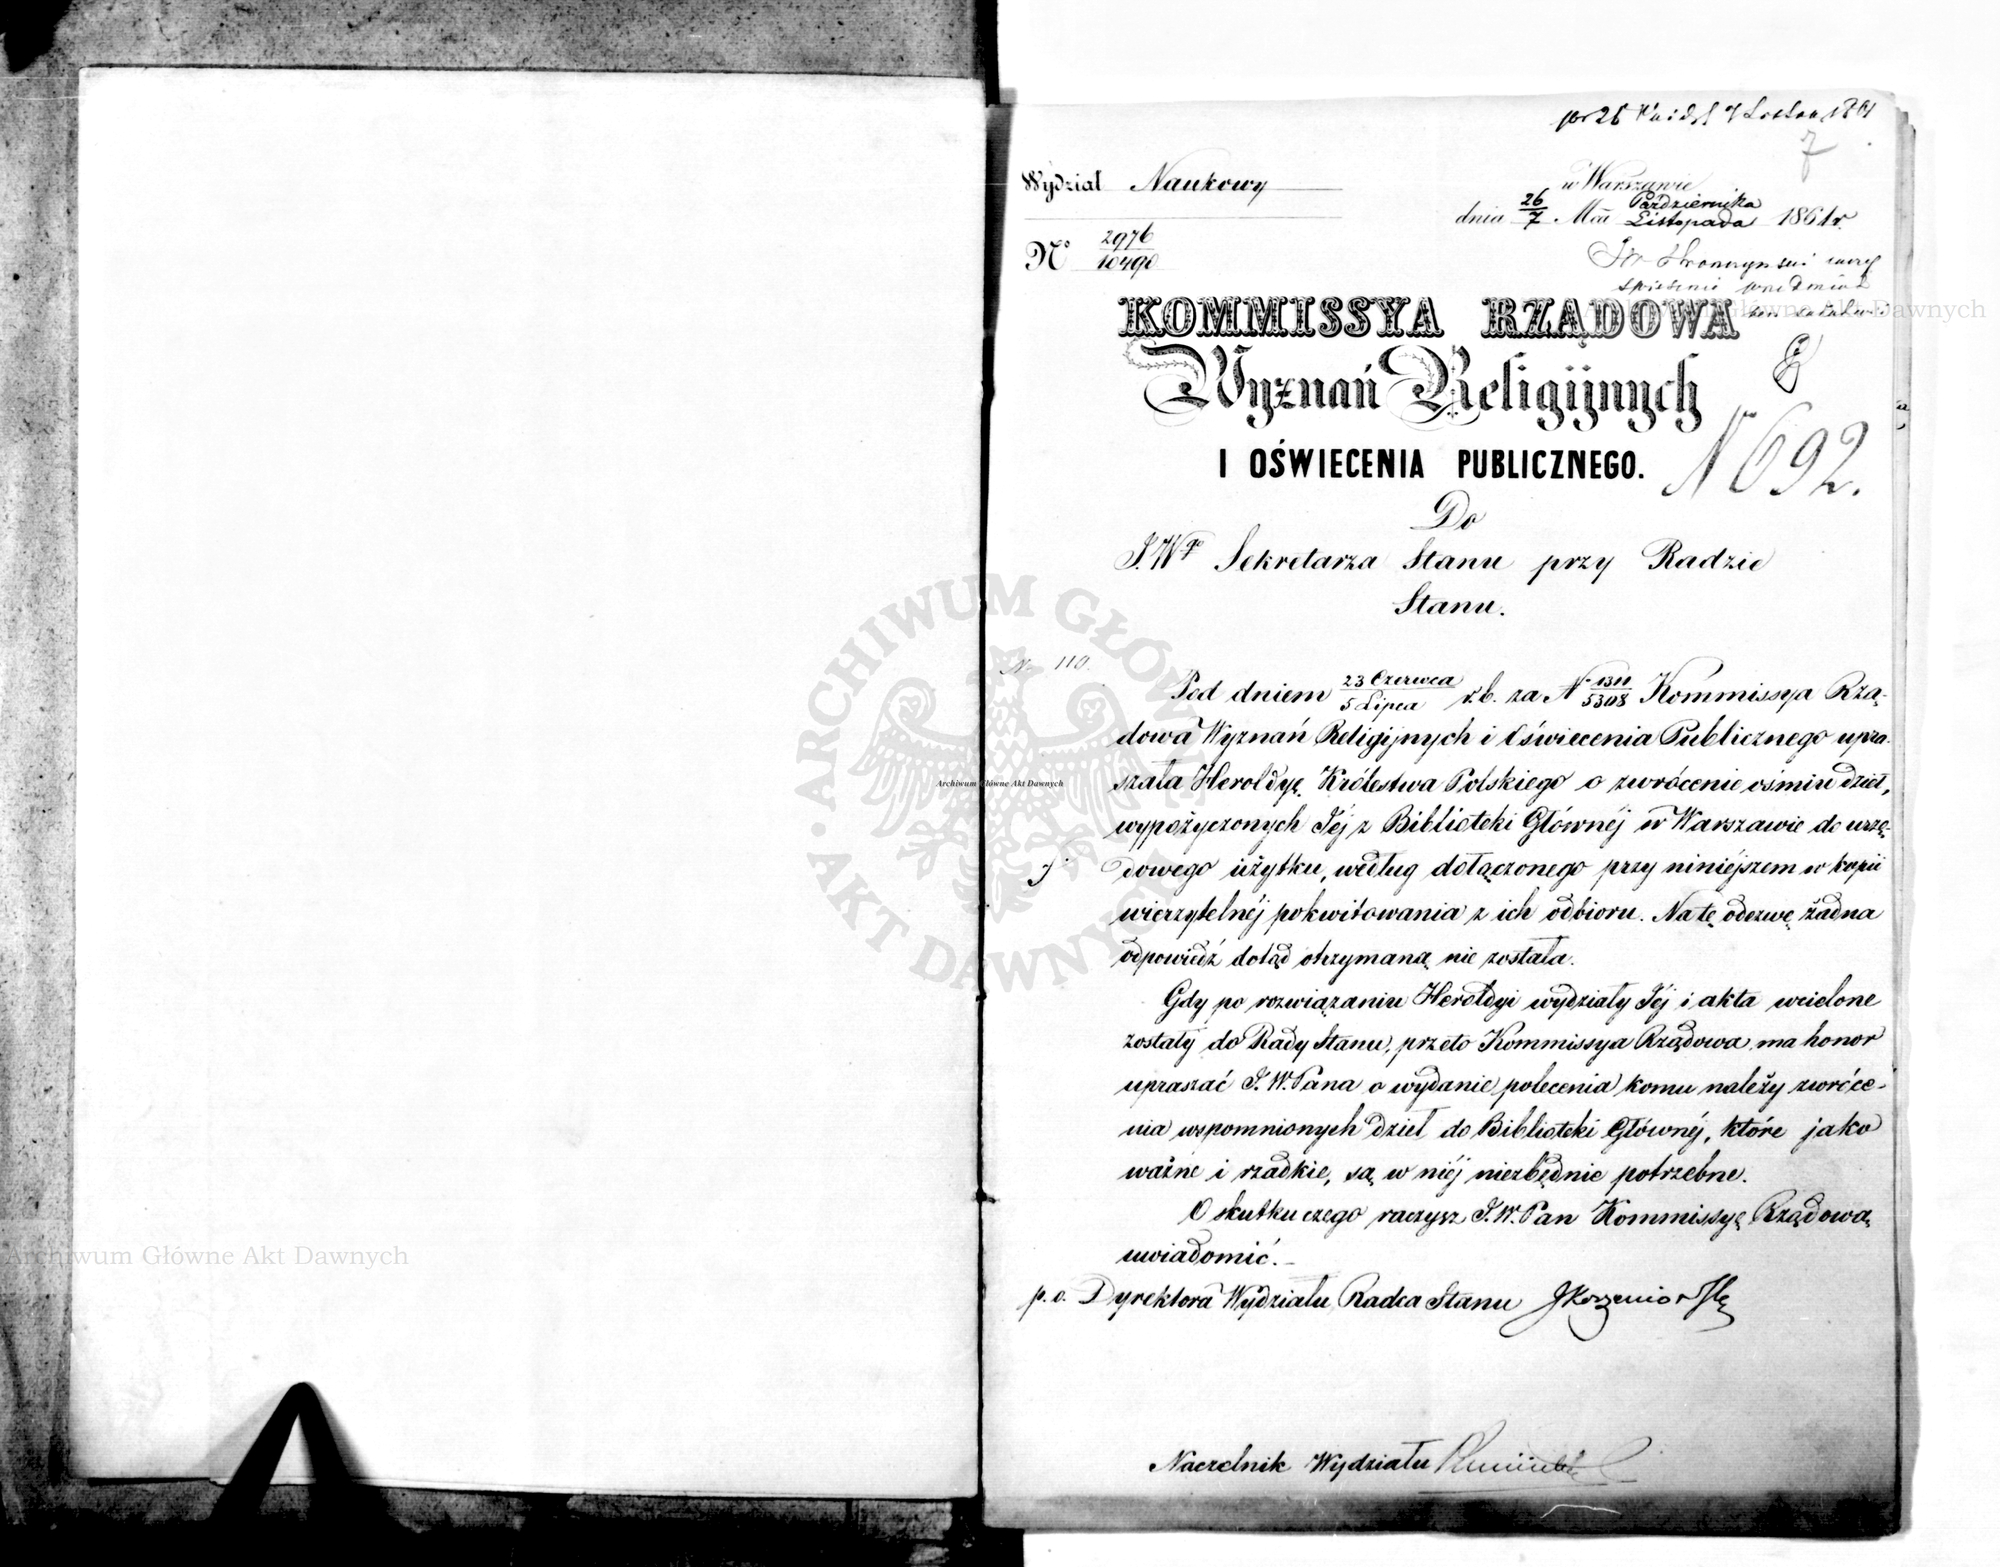 7
Wydział Naukowy
w Warszawie
dnia 26/7 Mca Października/Listopada 1861 r.
Nº 2976/10490
KOMMISSYA RZĄDOWA
Wyznań Religijnych
I OŚWIECENIA PUBLICZNEGO.
N 692.
Do
J.Wgo Sekretarza Stanu przy Radzie
Stanu.
N 110.
Pod dniem 23 Czerwca/5 Lipca r.b. za N 1311/5308 Kommissya Rzą-
dowa Wyznań Religijnych i Oświecenia Publicznego upra-
szała Heroldyę Królestwa Polskiego o zwrócenie ośmiu dzieł,
wypożyczonych Jéj z Biblioteki Głównéj w Warszawie do urzę-
dowego użytku, według dołączonego przy niniéjszem w kopii
wierzytelnéj pokwitowania z ich odbioru. Na tę odezwę żadna
odpowiedź dotąd otrzymaną nie została.
Gdy po rozwiązaniu Herołdyi wydziały Jéj i akta wcielone
zostały do Rady Stanu, przeto Kommissya Rządowa ma honor
upraszać J.W. Pana o wydanie polecenia komu należy zwróce-
nia wspomnionych dzieł do Biblioteki Głównéj, które jako
ważne i rzadkie, są w niéj niezbędnie potrzebne.
O skutku czego raczysz J.W. Pan Kommissyę Rządową
uwiadomić.
p.o. Dyrektora Wydziału, Radca Stanu JKorzeniowski
Naczelnik Wydziału
Archiwum Główne Akt Dawnych
Archiwum Główne Akt Dawnych
Archiwum Główne Akt Dawnych
ARCHIWUM GŁÓWNE AKT DAWNYCH